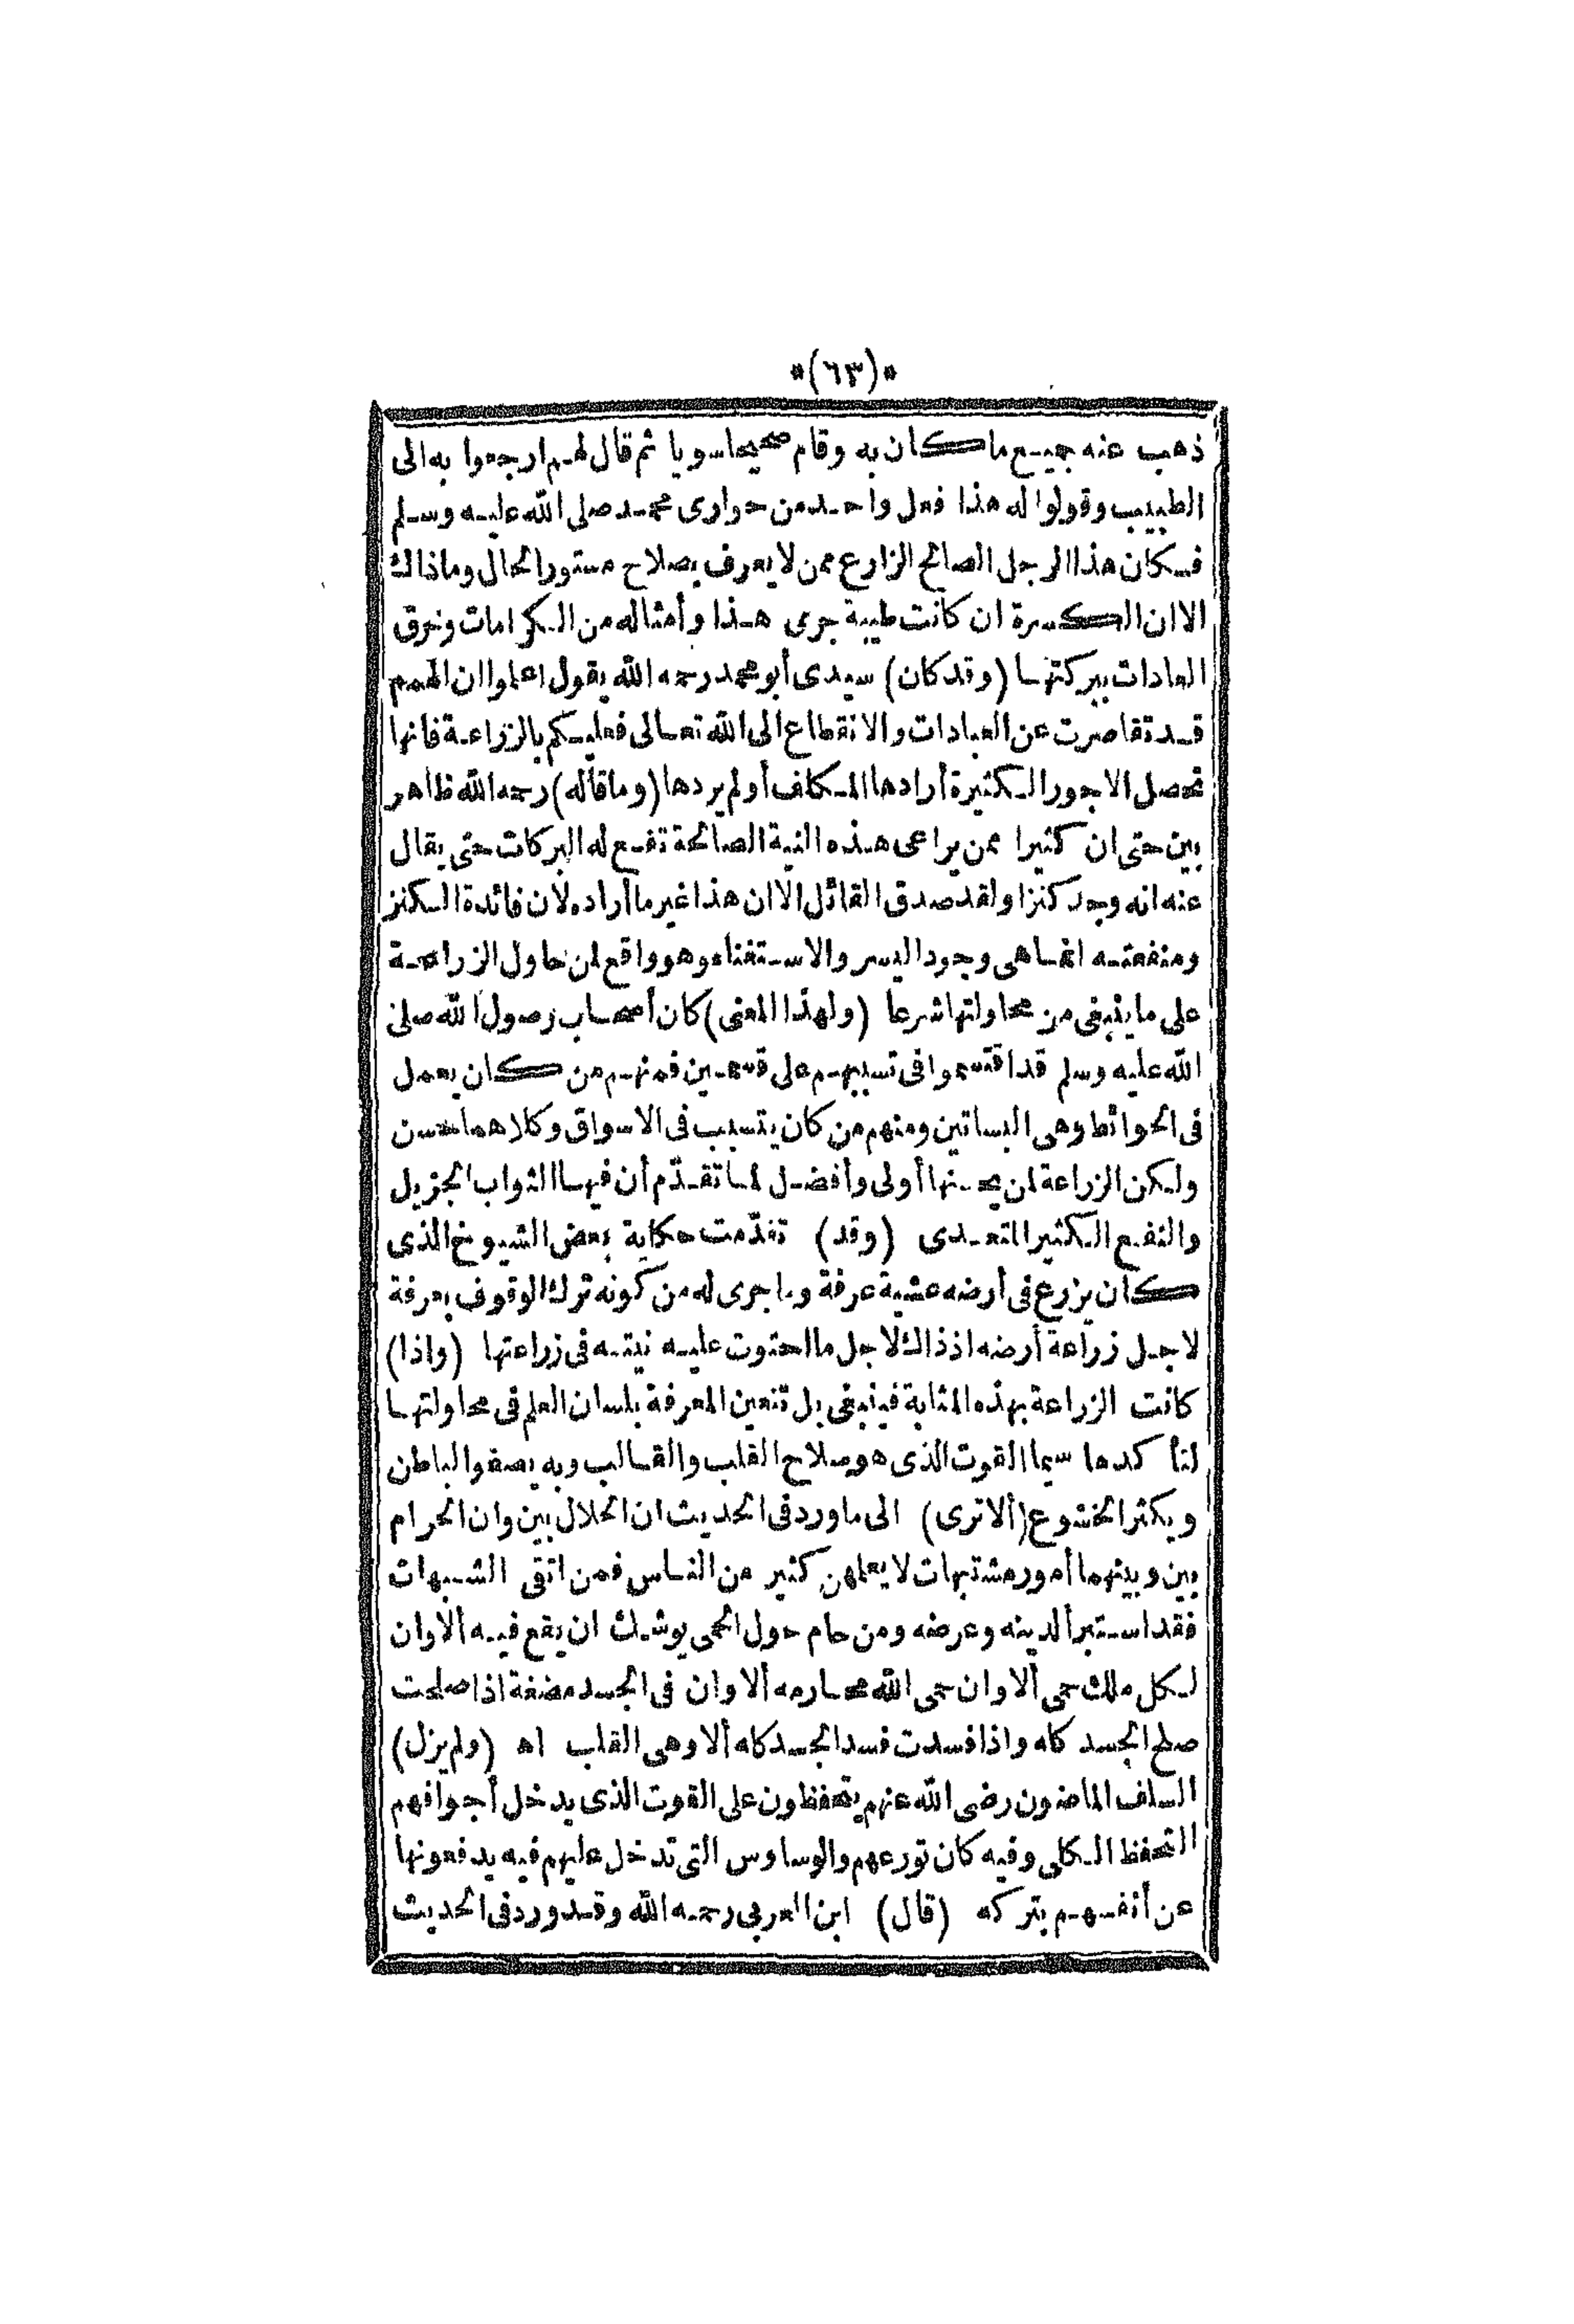 *(٦٣)*
ذهب عنه جميع ما كان به وقام صحيحا سويا ثم قال لهم ارجعوا به الى
الطبيب وقولوا له هذا فعل واحد من حوارى محمد صلى الله عليه وسلم
فكان هذا الرجل الصالح الزارع ممن لا يعرف بصلاح مستور الحال وما ذاك
الا ان الكسرة ان كانت طيبة جرى هذا وأمثاله من الكرامات وخرق
العادات ببركتها (وقد كان) سيدى أبو محمد رحمه الله يقول اعلموا ان الهمم
قد تقاصرت عن العبادات والانقطاع الى الله تعالى فعليكم بالزراعة فانها
تحصل الاجور الكثيرة أرادها المكلف أو لم يردها (وما قاله) رحمه الله ظاهر
بين حتى ان كثيرا ممن يراعى هذه النية الصالحة تقع له البركات حتى يقال
عنه انه وجد كنزا ولقد صدق القائل الا ان هذا غير ما أراده لان فائدة الكنز
ومنفعته انما هى وجود اليسر والاستغناء وهو واقع لمن حاول الزراعة
على ما ينبغى من محاولتها شرعا (ولهذا المعنى) كان أصحاب رسول الله صلى
الله عليه وسلم قد اقتسموا فى تسببهم على قسمين فمنهم من كان يعمل
فى الحوائط وهى البساتين ومنهم من كان يتسبب فى الاسواق وكلاهما حسن
ولكن الزراعة لمن يحسنها أولى وأفضل لما تقدّم أن فيها الثواب الجزيل
والنفع الكثير المتعدى (وقد) تقدّمت حكاية بعض الشيوخ الذى
كان يزرع فى أرضه عشية عرفة وما جرى له من كونه ترك الوقوف بعرفة
لاجل زراعة أرضه اذ ذاك لاجل ما احتوت عليه نيته فى زراعتها (واذا)
كانت الزراعة بهذه المثابة فينبغى بل تتعين المعرفة بلسان العلم فى محاولتها
لتأكدها سيما القوت الذى هو صلاح القلب والقالب وبه يصفو الباطن
ويكثر الخشوع (ألا ترى) الى ما ورد فى الحديث ان الحلال بين وان الحرام
بين وبينهما أمور مشتبهات لا يعلمهن كثير من الناس فمن اتقى الشبهات
فقد استبرأ لدينه وعرضه ومن حام حول الحمى يوشك ان يقع فيه ألا وان
لكل ملك حمى ألا وان حمى الله محارمه ألا وان فى الجسد مضغة اذا صلحت
صلح الجسد كله واذا فسدت فسد الجسد كله ألا وهى القلب اه (ولم يزل)
السلف الماضون رضى الله عنهم يتحفظون على القوت الذى يدخل أجوافهم
التحفظ الكلى وفيه كان تورعهم والوساوس التى تدخل عليهم فيه يدفعونها
عن أنفسهم بتركه (قال) ابن العربى رحمه الله وقد ورد فى الحديث